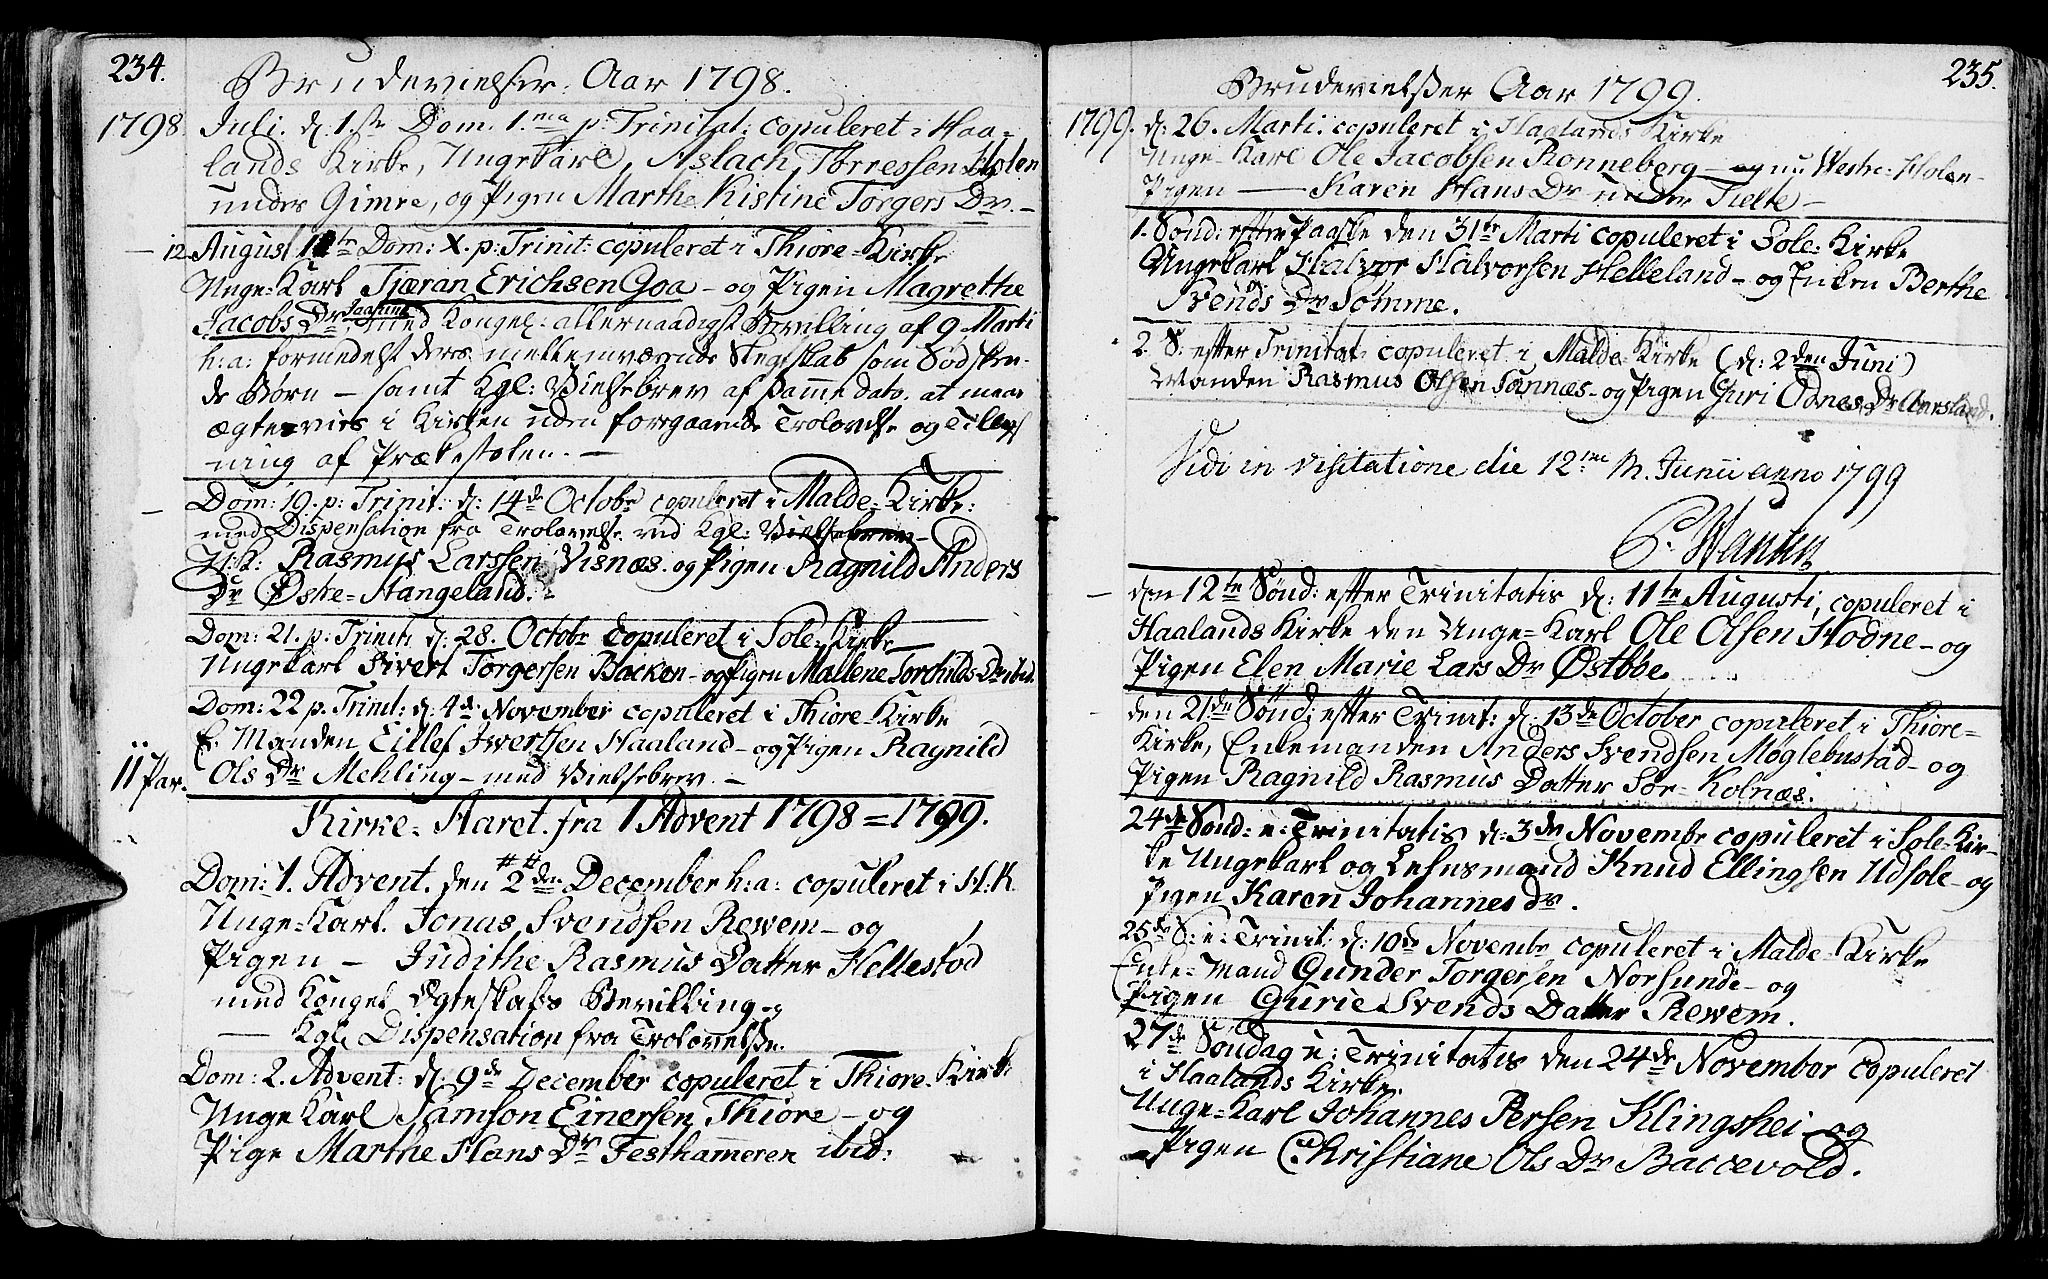 234.
Brudevielser. Aar 1798.
1798. Juli. d. 1.ste Dom. 1.ma p. Trinitat: copuleret i Haa-
lands Kirke, Ungekarl, Aslach Torressen Holen
under Gimre, og Pigen Marthe Kistine Torgers Dr. -
12 August Dom: X. p: Trinit: copuleret i Thiore-Kirke
Unge-Karl Tjæran Erichsen Goa - og Pigen Magrethe
Jacobs Dr Jaasund med Kongel: allernaadigst Bevilling af 9 Marti
h: a: formedelst deres mellemværende Slegtskab som Sødsken-
de Børn - samt Kgl: Vielsebrev af samme dato. at maae
ægtevies i Kirken uden foregaaende Trolovelse og Tillys
ning af Prækestolen. -
Dom: 19. p: Trinit: d: 14de Octobr copuleret i Malde-Kirke:
med Dispensation fra Trolovelse ved Kgl: Vielsebrev -
U:K: Rasmus Larssen Visnæs og Pigen Ragnild Anders
Dr Østre-Stangeland.
Dom: 21. p: Trinit: d: 28. Octobr copuleret i Sole-Kirke -
Ungekarl Sivert Torgersen Backen - og Pigen Mallene Torchilds Dr ibid.
Dom: 22 p. Trinit: d: 4de November copuleret i Thiore-Kirke
E. Manden Eillef Ivertsen Haaland - og Pigen Ragnild
11 Par. Ols Dr Mehling - med Vielsebrev. -
Kirke-Aaret fra 1 Advent 1798 = 1799.
Dom: 1. Advent. den 2den December h: a: copuleret i H: K.
Unge-Karl. Jonas Svendsen Rewem - og
Pigen - Judithe Rasmus Datter Hellestod
med Kongel Ægteskabs Bevilling og
- Kgl. Dispensation fra Trolovelse.
Dom: 2. Advent: d. 9de December copuleret i Thiore-Kirke
Unge Karl Samson Einersen Thiore - og
Pige Marthe Hans Dr Festhameren ibid:
235.
Brudevielser Aar 1799.
1799. d: 26. Marti. copuleret i Haalands Kirke
Unge-Karl Ole Jacobsen Ronneberg - og nu Westre-Holen -
Pigen - Karen Hans Dr under Tielte -
1. Sønd: efter Paaske den 31te Marti copuleret i Sole-Kirke
Ungekarl Halvor Halvorsen Helleland - og Enken Berthe
Svends Dr Somme.
2. S. efter Trinitat: copuleret i Malde-Kirke (d: 2den Juni)
Manden Rasmus Olsen Sannæs - og Pigen Guri Odnes Dr Aarsland.
Vidi in visitatione die 12ma M. Junii anno 1799
den 12te Sønd: efter Trinitatis d: 11te Augusti, copuleret i
Haalands Kirke den Unge-Karl Ole Olsen Hodne - og
Pigen Elen Marie Lars Dr Østbøe.
den 21de Sønd: efter Trinit: d: 13de October copuleret i Thiore-
Kirke, Enkemanden Anders Svendsen Moglebustad - og
Pigen Ragnild Rasmus Datter Sør-Kolnæs.
24de Sønd: e: Trinitatis d: 3de Novembr copuleret i Sole-Kir-
ke Ungekarl og Lehnsmand Knud Ellingsen Udsole - og
Pigen Karen Johannes Dr.
25de S: e: Trinit: d: 10de Novembr copuleret i Malde-Kirke
Enke-Mand Gunder Torgersen Norsunde - og
Pigen Gurie Svends Datter Rewem.
27de Søndag e: Trinitatis den 24de November copuleret
i Haalands Kirke
Unge-Karl Johannes Persen Klingshei - og
Pigen Christiane Ols Dr Baccevold.